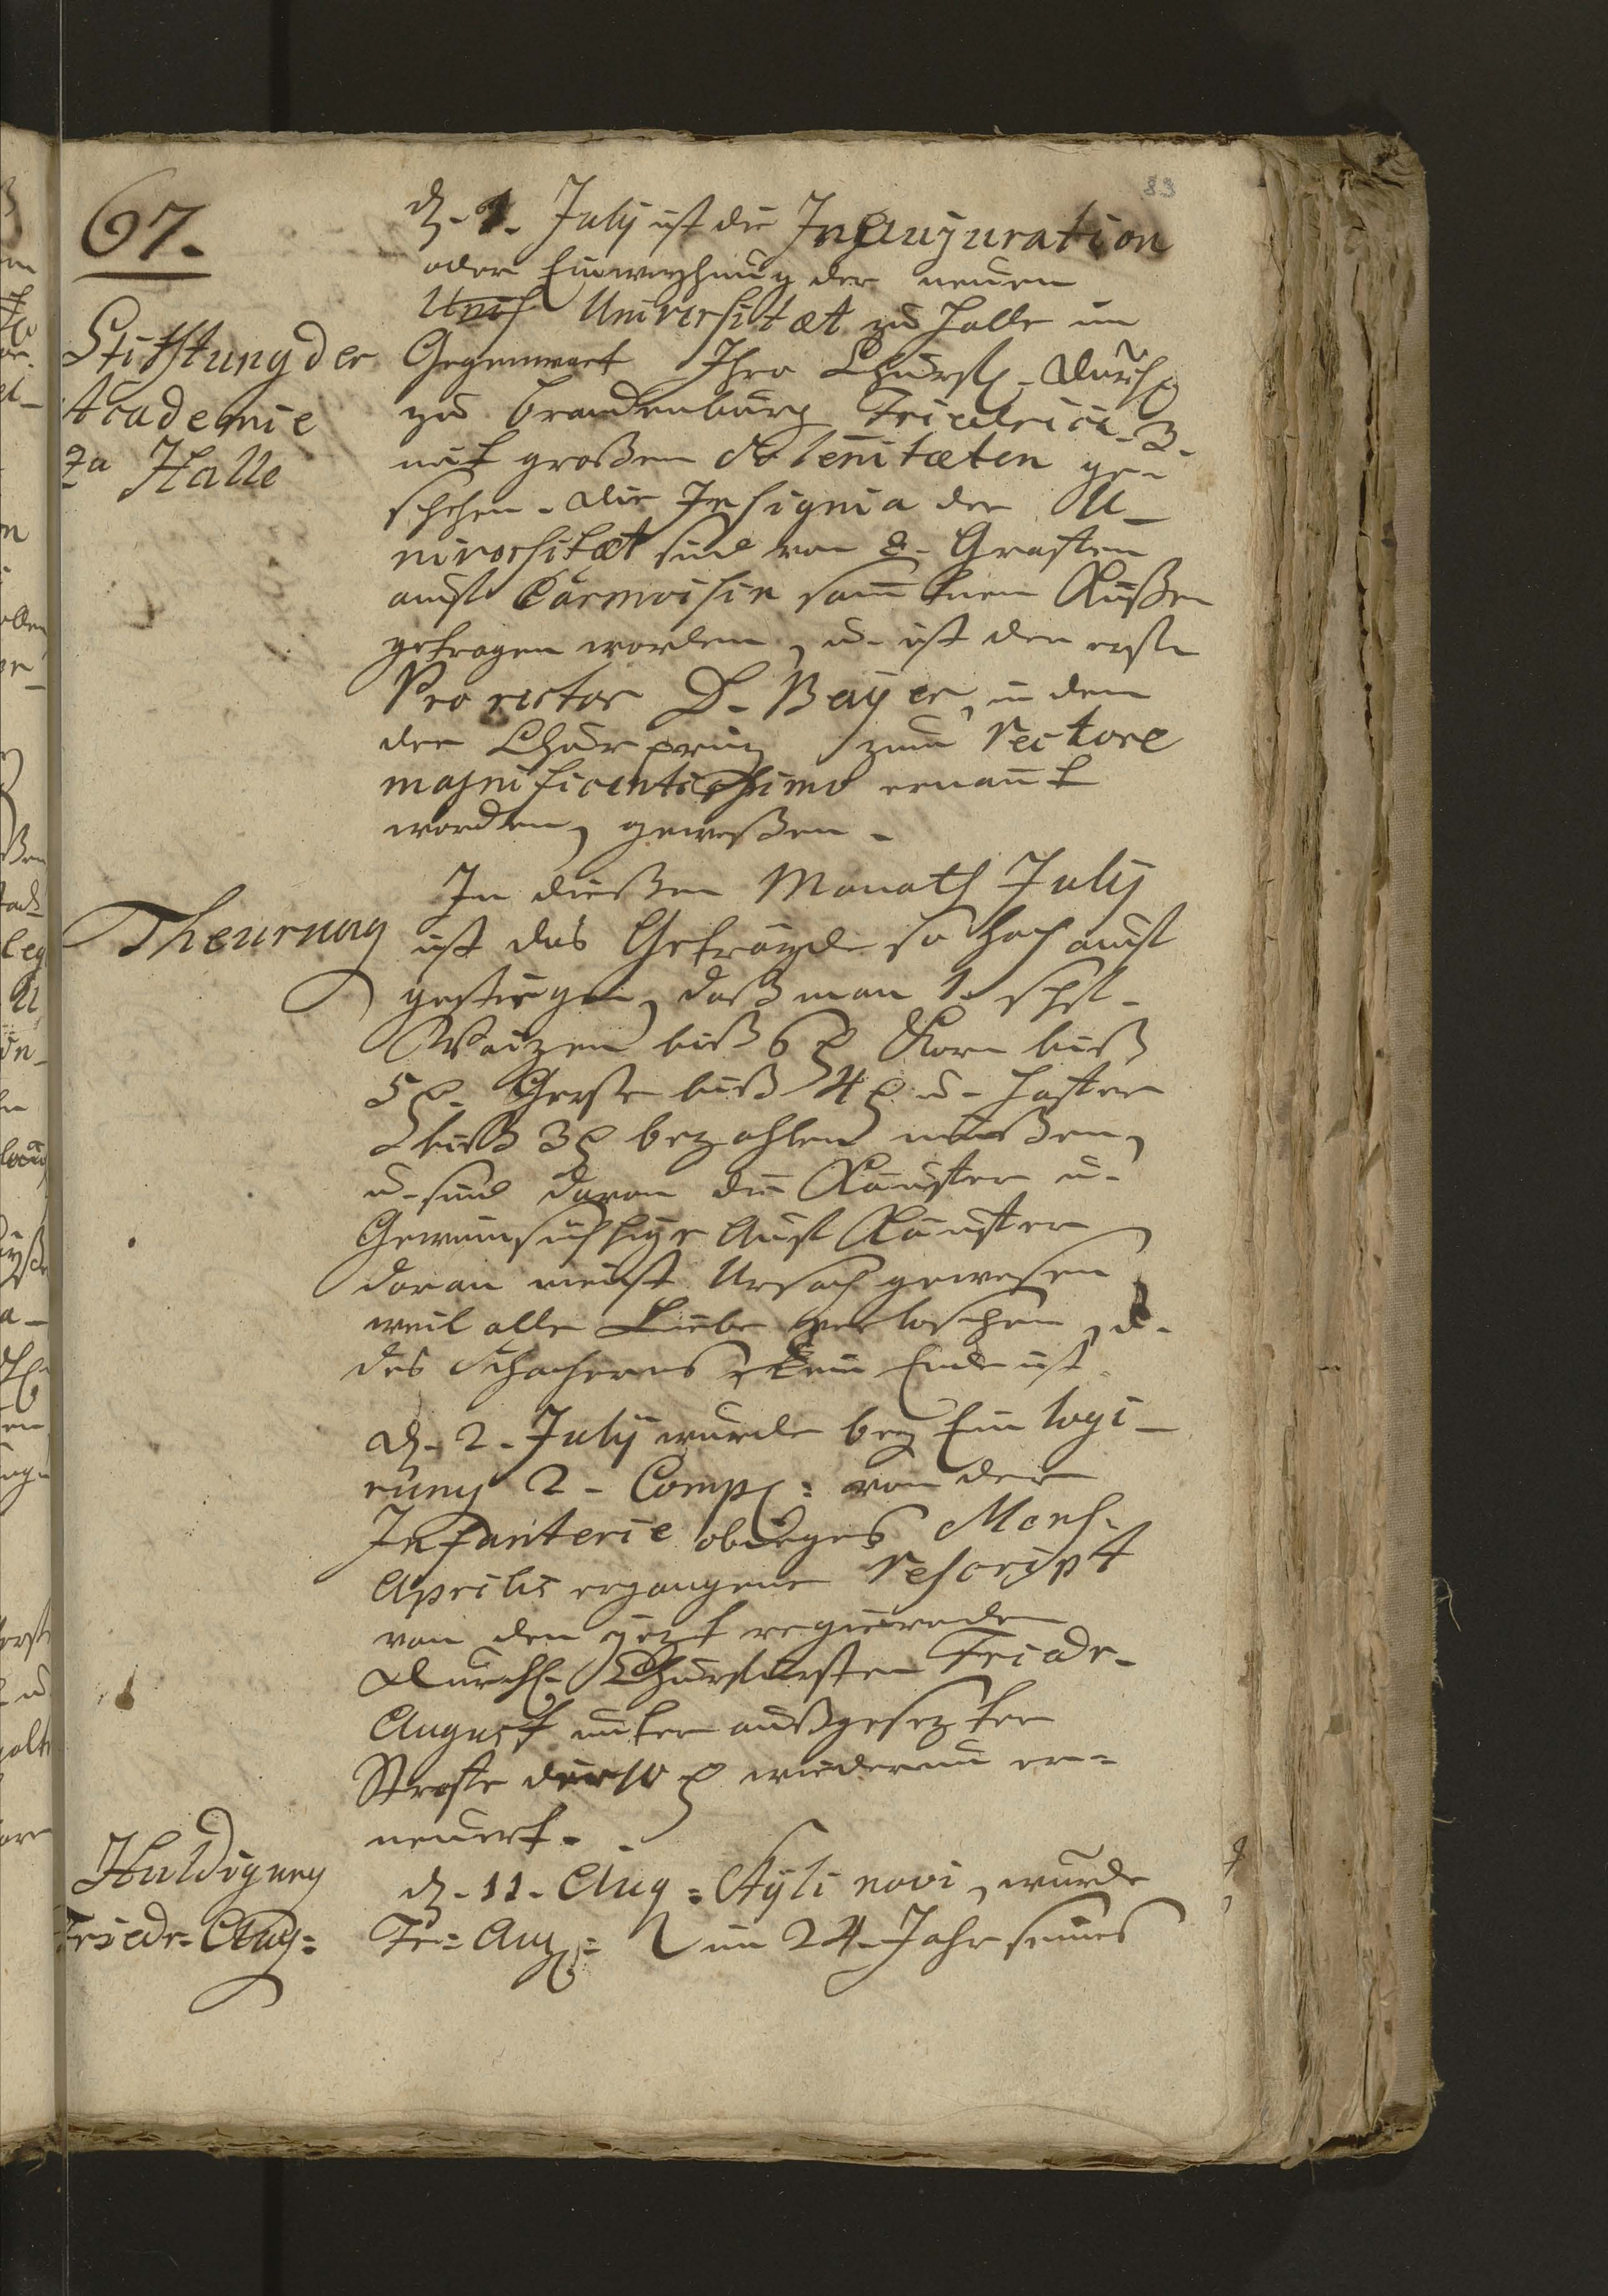 83
67.
d. 1. Julij ist die Inaugüration
oder Einweyhung der neuen
Univ Universitæt zu Halle in
Stifftung der
Academie
zu Halle
Gegenwart Ihro Churfl. Durchl.
zu Brandenburg Friedrici 3.
mit großen Solenitæten ge-
schehen. die Insignia der U-
niversitæt sind von 2. Graffen
auff Carmoisin sammtnen Küßen
getragen worden, u. ist der erste
Pro rector D. Bayer, in dem
der Churprinz zum Rectore
magnificentissimo ernañt
worden, gewesen.
In diesen Monath Julij
Theurung
ist das Getraÿde so hoch auff
gestiegen, daß man 1. schfl.
Waizen biß 6 f Korn biß
5 f. Gerste biß 4 f u. Haffer
biß 3 f bezahlen müßen,
u. sind daran die Käuffer u.
Gewinsüchtige Auff Käuffer
daran meist Ursach gewesen
weil alle Liebe verloschen, u.
des Schacherns kein Ende ist.
d. 2. Julij wurde bey Ein logi-
rung 2. Comp: von der
Infanterie obiges Mens.
Aprilis ergangene Rescript
von den jezt regierenden
Durchl. Churfürsten Friedr.
August unter außgesezter
Straffe der 10 f wiederum er-
neuert.
Huldigung
Friedr. Aug:
d. 11. Aug: Styli novi, wurde
Fr: Aug: im 24. Jahr seines